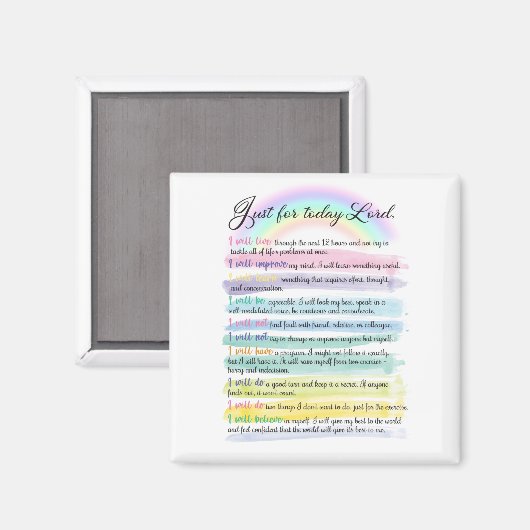 Just for today Lord,
I will live through the next 12 hours and not try to
tackle all of life's problems at once.
I will improve my mind. I will learn something useful.
I will something that requires effort, thought,
and concentration.
I will be agreeable. I will look my best, speak in a
well modulated voice, be courteous and considerate.
I will not find fault with friend, relative, or colleague.
I will not try to change or improve anyone but myself.
I will have a program. I might not follow it exactly,
but I will have it. I will save myself from two enemies -
hurry and indecision.
I will do a good turn and keep it a secret. If anyone
finds out, it won't count.
I will do two things I don't want to do, just for the exercise.
I will believe in myself. I will give my best to the world
and feel confident that the world will give its best to me.